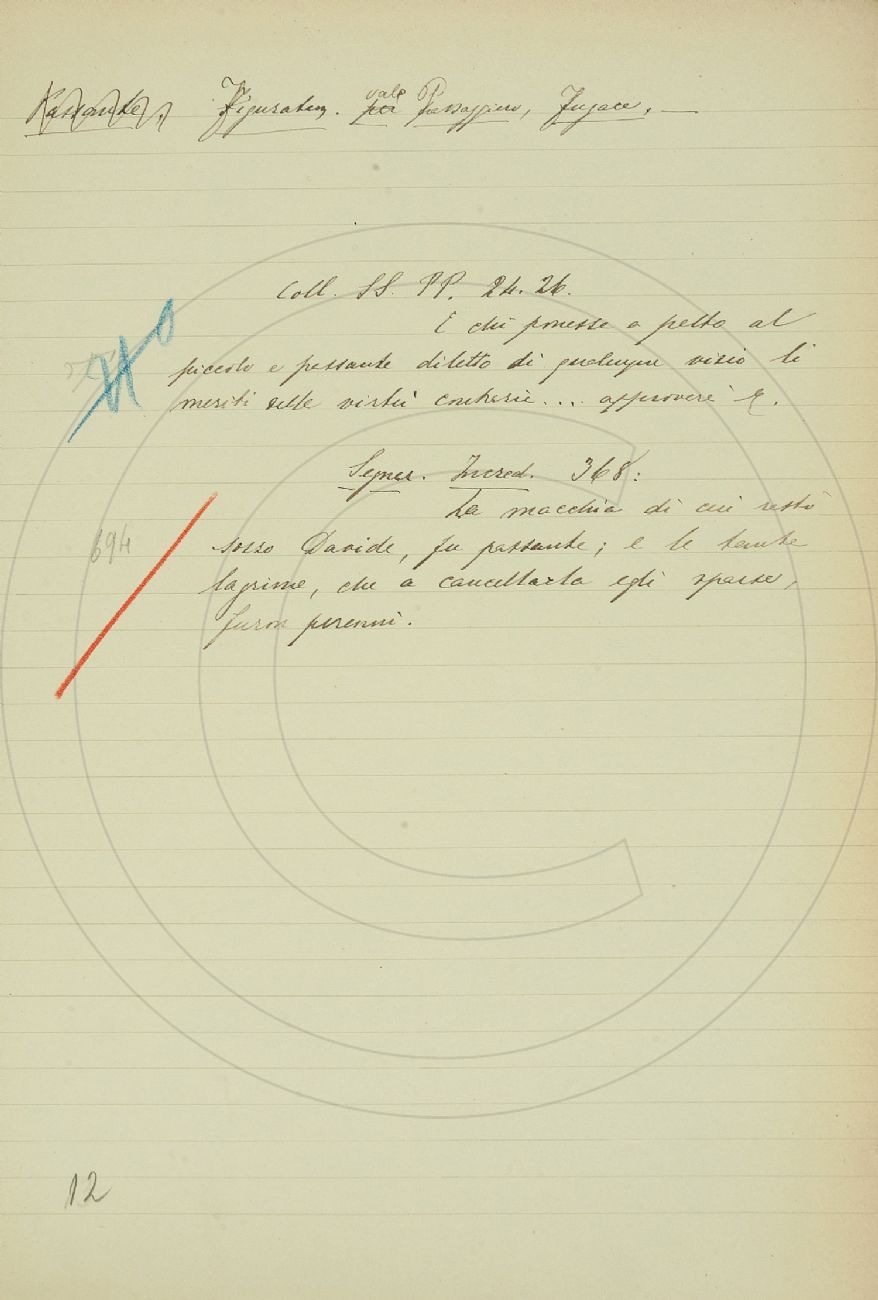 Passante. Figuratam. per vale Passaggiero, Fugace. —
Coll. SS. PP. 24. 26.
E chi ponesse a petto al
piccolo e passante diletto di qualunque vizio li
meriti delle virtù contrarie.... approverà
Segner. Incred. 368:
La macchia di cui restò
sozzo Davide, fu passante; e le tante
694
lagrime, che a cancellarla egli sparse,
furon perenni.
12